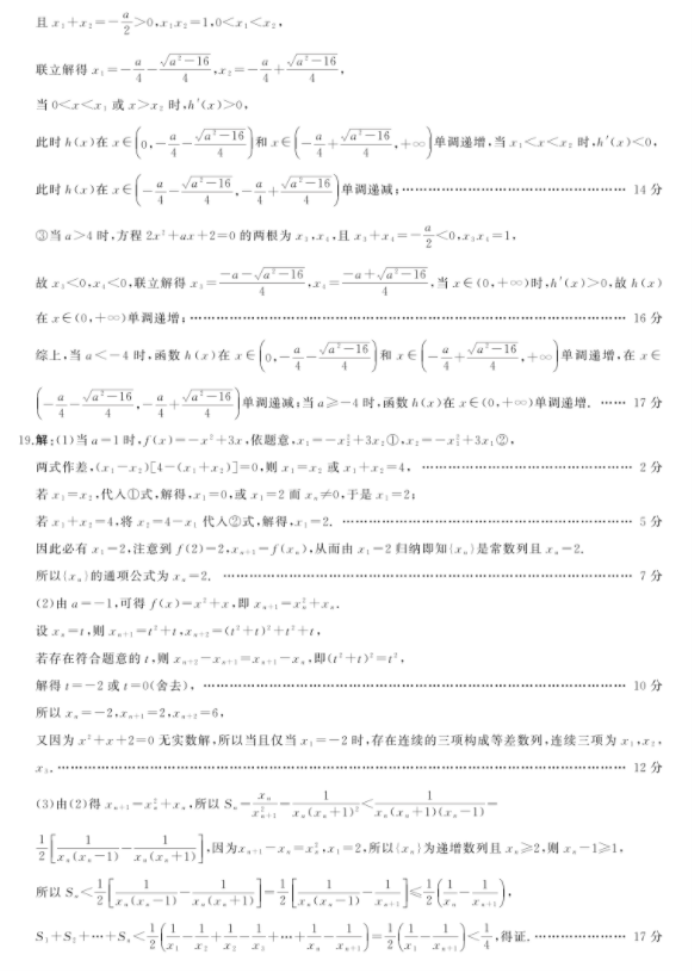 且 x₁+x₂=−a/2>0,x₁x₂=1,0<x₁<x₂,
联立解得 x₁=−a/4−√(a²−16)/4,x₂=−a/4+√(a²−16)/4,
当 0<x<x₁ 或 x>x₂ 时,h′(x)>0,
此时 h(x)在 x∈(0,−a/4−√(a²−16)/4)和 x∈(−a/4+√(a²−16)/4,+∞)单调递增,当 x₁<x<x₂ 时,h′(x)<0,
此时 h(x)在 x∈(−a/4−√(a²−16)/4,−a/4+√(a²−16)/4)单调递减;…… 14 分
③当 a>4 时,方程 2x²+ax+2=0 的两根为 x₃,x₄,且 x₃+x₄=−a/2<0,x₃x₄=1,
故 x₃<0,x₄<0,联立解得 x₃=(−a−√(a²−16))/4,x₄=(−a+√(a²−16))/4,当 x∈(0,+∞)时,h′(x)>0,故 h(x)
在 x∈(0,+∞)单调递增;…… 16 分
综上,当 a<−4 时,函数 h(x)在 x∈(0,−a/4−√(a²−16)/4)和 x∈(−a/4+√(a²−16)/4,+∞)单调递增,在 x∈
(−a/4−√(a²−16)/4,−a/4+√(a²−16)/4)单调递减;当 a≥−4 时,函数 h(x)在 x∈(0,+∞)单调递增. …… 17 分
19.解:(1)当 a=1 时,f(x)=−x²+3x,依题意,x₁=−x₂²+3x₂①,x₂=−x₁²+3x₁②,
两式作差,(x₁−x₂)[4−(x₁+x₂)]=0,则 x₁=x₂ 或 x₁+x₂=4, …… 2 分
若 x₁=x₂,代入①式,解得,x₁=0,或 x₁=2 而 xₙ≠0,于是 x₁=2;
若 x₁+x₂=4,将 x₂=4−x₁ 代入②式,解得,x₁=2. …… 5 分
因此必有 x₁=2,注意到 f(2)=2,xₙ₊₁=f(xₙ),从而由 x₁=2 归纳即知{xₙ}是常数列且 xₙ=2.
所以{xₙ}的通项公式为 xₙ=2. …… 7 分
(2)由 a=−1,可得 f(x)=x²+x,即 xₙ₊₁=xₙ²+xₙ.
设 xₙ=t,则 xₙ₊₁=t²+t,xₙ₊₂=(t²+t)²+t²+t,
若存在符合题意的 t,则 xₙ₊₂−xₙ₊₁=xₙ₊₁−xₙ,即(t²+t)²=t²,
解得 t=−2 或 t=0(舍去), …… 10 分
所以 xₙ=−2,xₙ₊₁=2,xₙ₊₂=6,
又因为 x²+x+2=0 无实数解,所以当且仅当 x₁=−2 时,存在连续的三项构成等差数列,连续三项为 x₁,x₂,
x₃. …… 12 分
(3)由(2)得 xₙ₊₁=xₙ²+xₙ,所以 Sₙ=xₙ/xₙ₊₁²=1/(xₙ(xₙ+1)²)<1/(xₙ(xₙ+1)(xₙ−1))=
1/2[1/(xₙ(xₙ−1))−1/(xₙ(xₙ+1))],因为xₙ₊₁−xₙ=xₙ²,x₁=2,所以{xₙ}为递增数列且 xₙ≥2,则 xₙ−1≥1,
所以 Sₙ<1/2[1/(xₙ(xₙ−1))−1/(xₙ(xₙ+1))]=1/2[1/(xₙ(xₙ−1))−1/xₙ₊₁]≤1/2(1/xₙ−1/xₙ₊₁),
S₁+S₂+⋯+Sₙ<1/2(1/x₁−1/x₂+1/x₂−1/x₃+⋯+1/xₙ−1/xₙ₊₁)=1/2(1/x₁−1/xₙ₊₁)<1/4,得证. …… 17 分